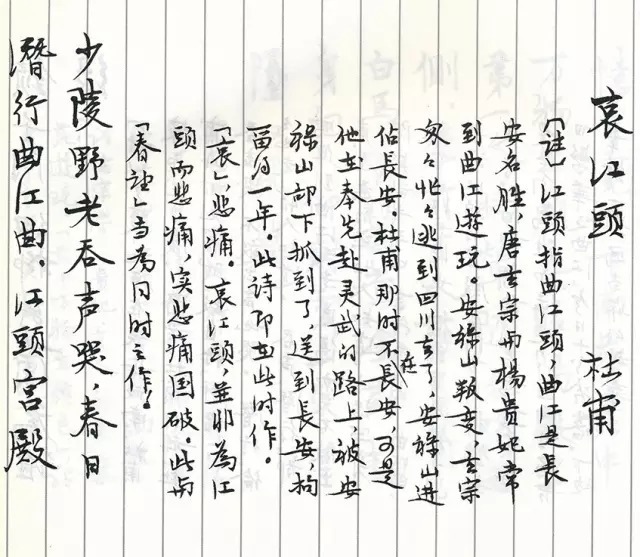 哀江頭 杜甫
「註」江頭指曲江頭，曲江是長
安名胜，唐玄宗与楊貴妃常
到曲江遊玩。安祿山叛变，玄宗
匆々忙々逃到四川去了，安祿山进
佔長安。杜甫那时不在長安，可是
他在奉先赴灵武的路上，被安
祿山部下抓到了，送到長安，拘
留一年。此诗即在此时作。
「哀」，悲痛。哀江頭，並非為江
頭而悲痛，实悲痛国破。此与
「春望」当為同时之作。
少陵野老吞声哭，春日
潛行曲江曲。江頭宮殿